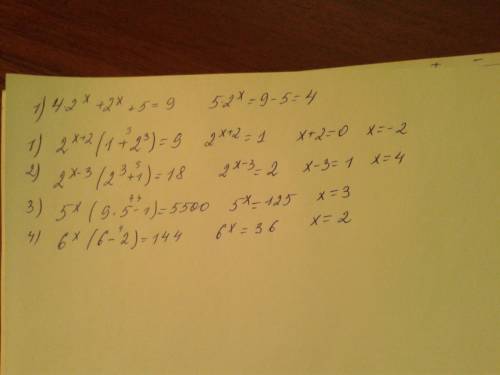 1) 4·2^x + 2^x + 5 = 9 5·2^x = 9 - 5 = 4
1) 2^{x+2} (1 + 2^3) = 9 2^{x+2} = 1 x+2=0 x=-2
2) 2^{x-3} (2^3 + 1) = 18 2^{x-3} = 2 x-3=1 x=4
3) 5^x (9·5 - 1) = 5500 5^x = 125 x=3
4) 6^x (6 - 2) = 144 6^x = 36 x=2